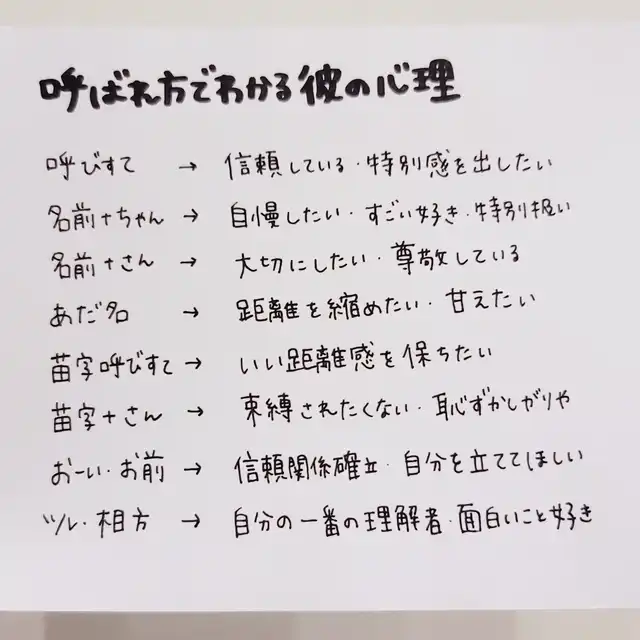 呼ばれ方でわかる彼の心理
呼びすて → 信頼している・特別感を出したい
名前+ちゃん → 自慢したい・すごい好き・特別扱い
名前+さん → 大切にしたい・尊敬している
あだ名 → 距離を縮めたい・甘えたい
苗字呼びすて → いい距離感を保ちたい
苗字+さん → 束縛されたくない・恥ずかしがりや
おーい・お前 → 信頼関係確立・自分を立ててほしい
ツレ・相方 → 自分の一番の理解者・面白いこと好き